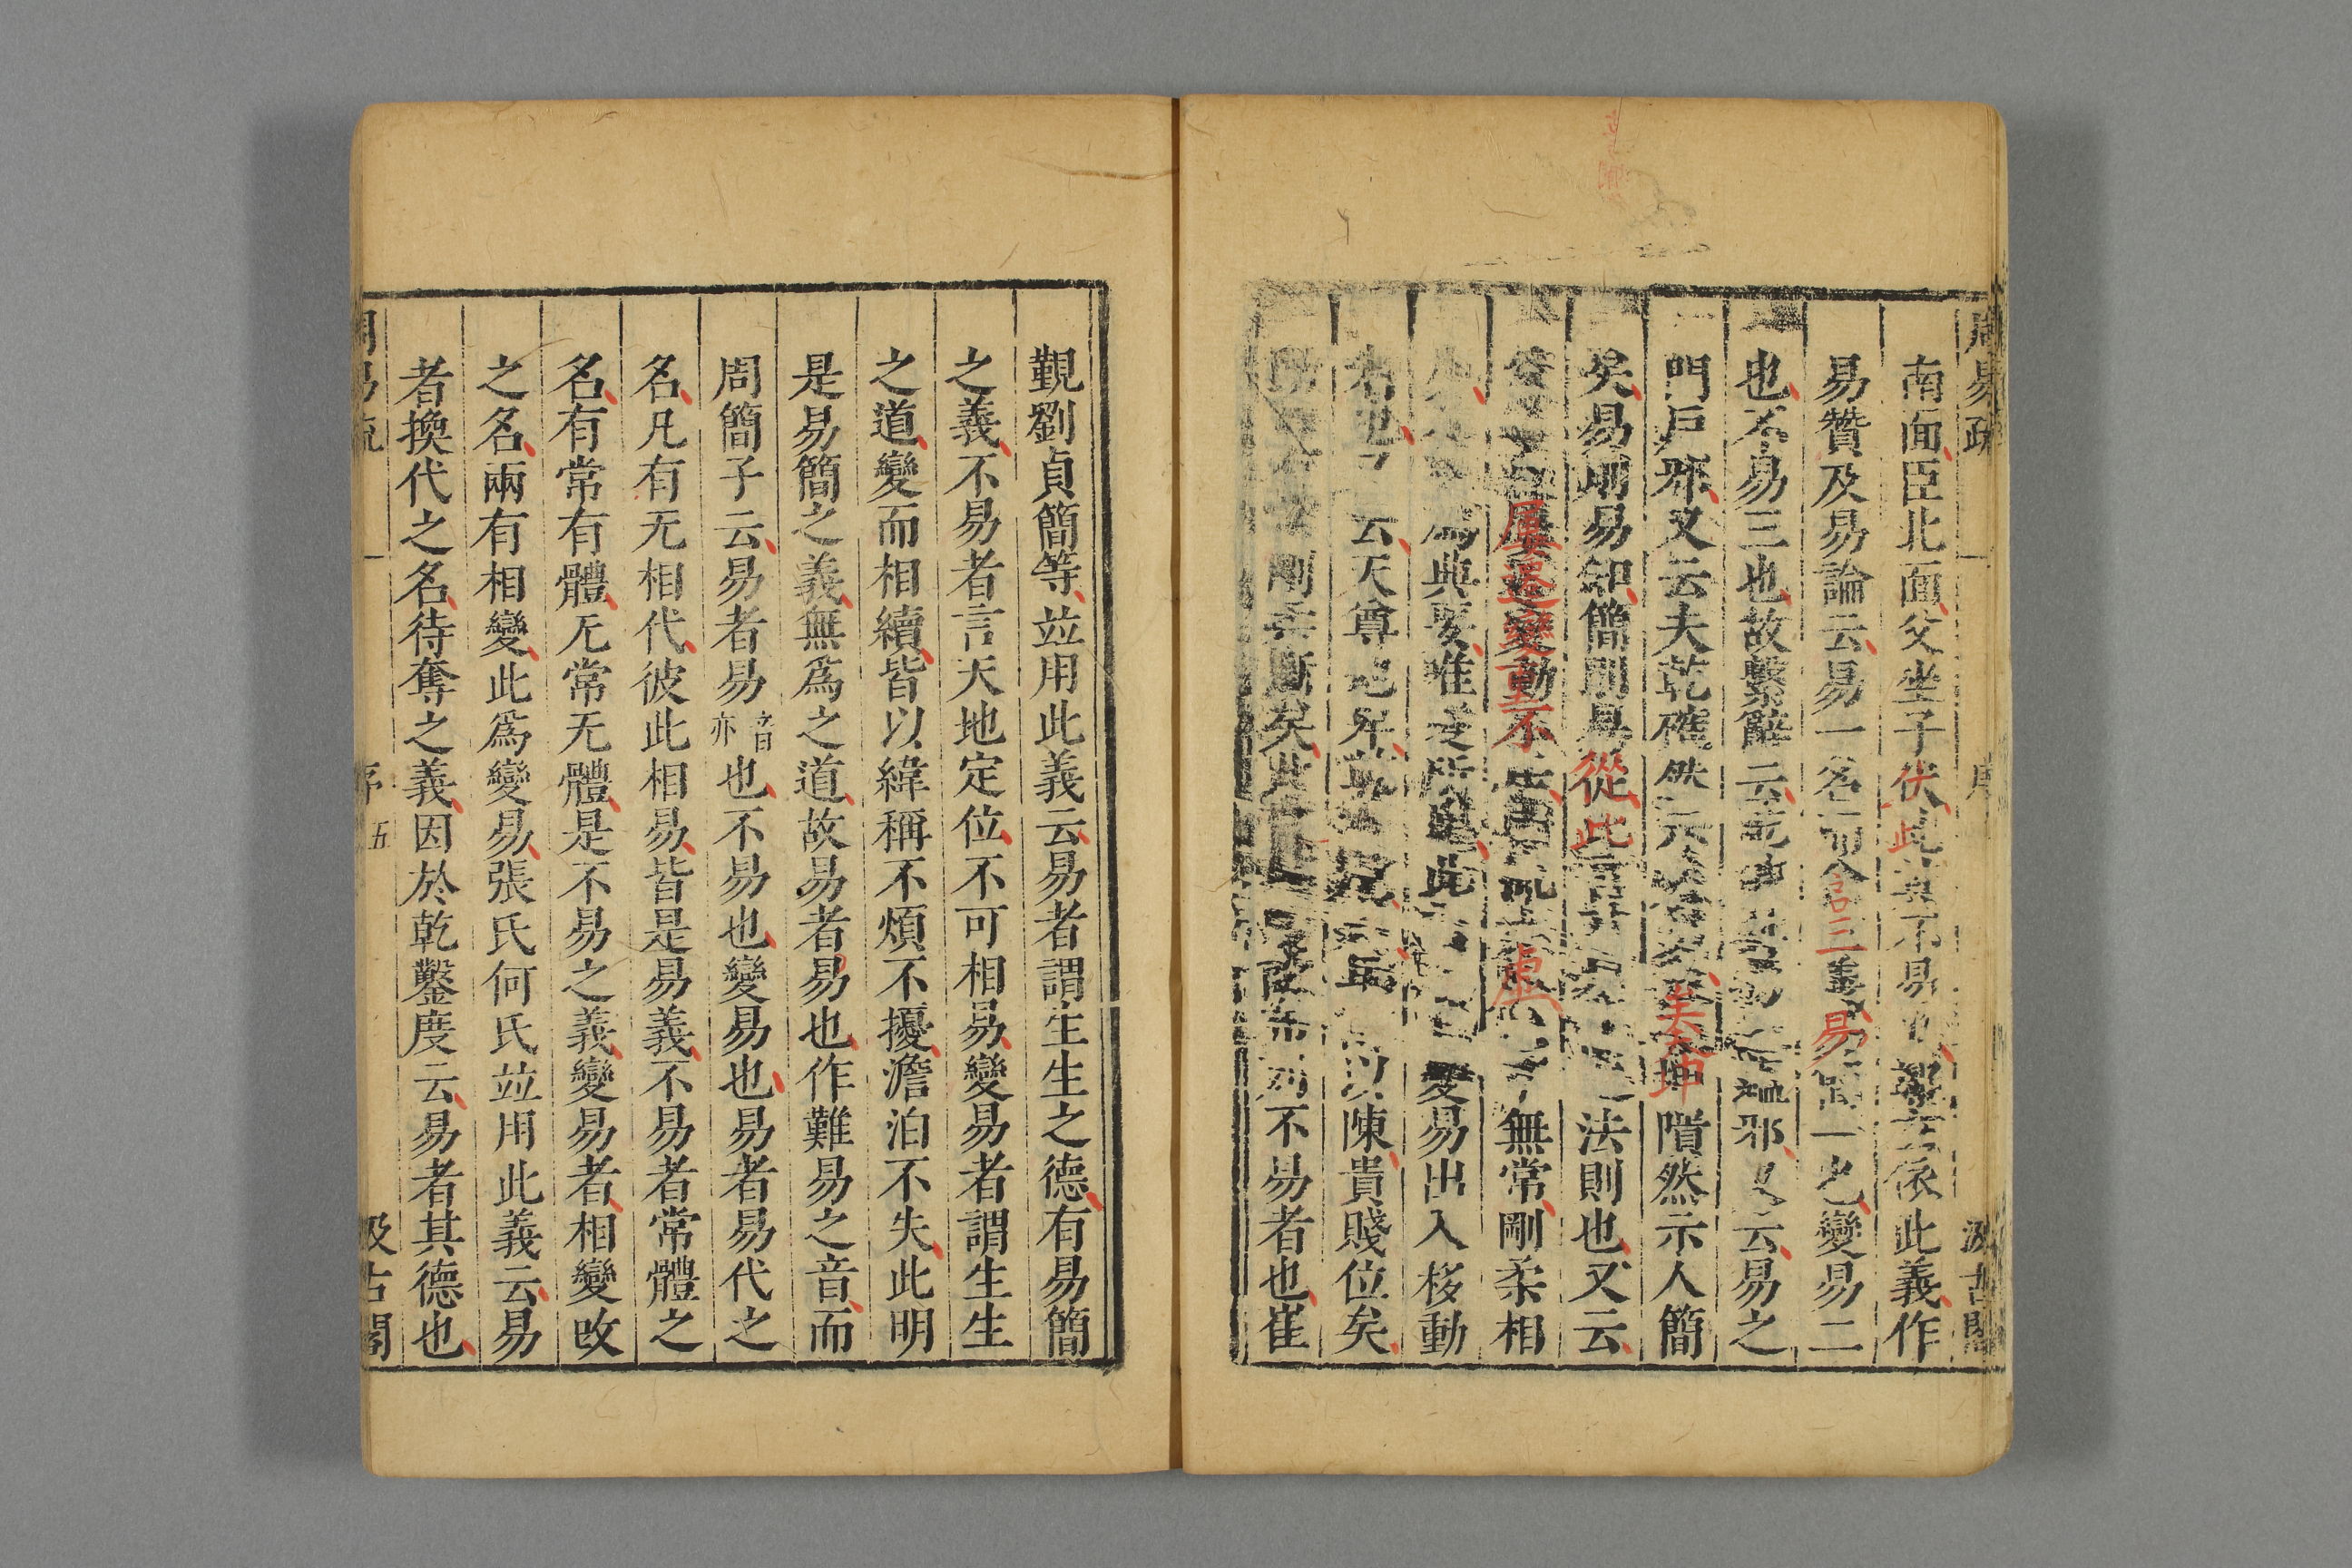 周易疏 一 序 汲古閣
南面臣北面父坐子伏此其不易也鄭玄依此義作
易贊及易論云易一名而含言三義易簡一也變易二
也不易三也故繫辭云乾坤其易之縕邪又云易之
門戶邪又云夫乾確然示人矣夫坤隤然示人簡
矣易則易知簡則易從此言其法則也又云
屢遷變動不居虛無常剛柔相
為典要唯變所適此變易出入移動
者也云天尊地卑乾以陳貴賤位矣
剛柔斷矣此設布列不易者也崔
覲劉貞簡等並用此義云易者謂生生之德有易簡
之義不易者言天地定位不可相易變易者謂生生
之道變而相續皆以緯稱不煩不擾澹泊不失此明
是易簡之義無為之道故易者易也作難易之音而
周簡子云易者易音亦也不易也變易也易者易代之
名凡有无相代彼此相易皆是易義不易者常體之
名有常有體无常无體是不易之義變易者相變改
之名兩有相變此為變易張氏何氏並用此義云易
者換代之名待奪之義因於乾鑿度云易者其德也
周易疏 一 序 五 汲古閣